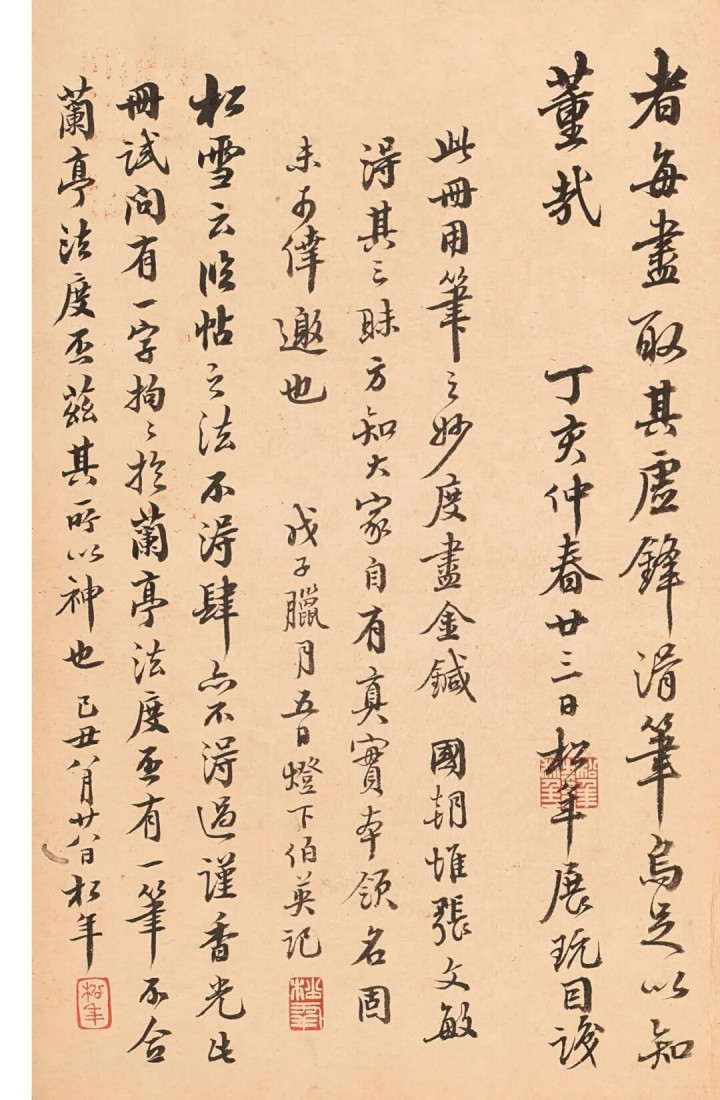 者每盡取其虛鋒滑筆烏足以知
董哉
丁亥仲春廿三日松年展玩因識
此冊用筆之妙度盡金鍼 國朝惟張文敏
得其三昧方知大家自有真實本領名固
未可倖邀也
戊子臘月五日燈下伯英記
松雪云臨帖之法不得肆亦不得過謹香光此
冊試問有一字拘〻於蘭亭法度否有一筆不合
蘭亭法度否茲其所以神也 己丑八月廿八日松年
松年